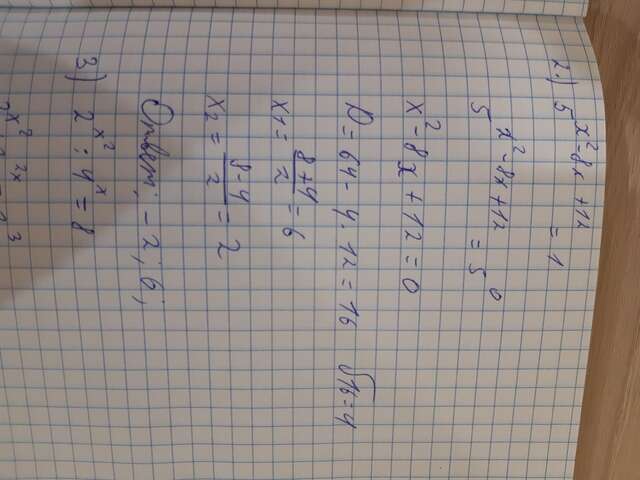 2.) 5^{x²-8x+12} = 1
5^{x²-8x+12} = 5^0
x²-8x+12=0
D=64-4·12=16 √16=4
x₁ = \frac{8+4}{2} = 6
x₂ = \frac{8-4}{2} = 2
Ответ: -2; 6;
3) 2^{x²} : 4^x = 8